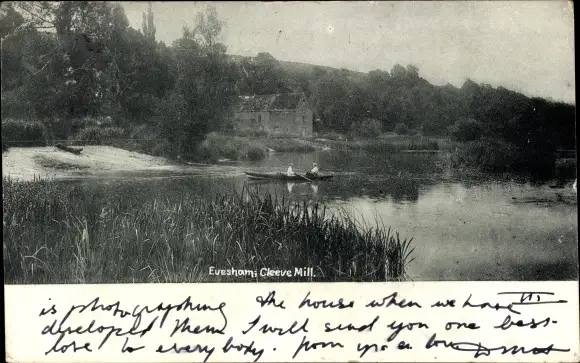 Evesham; Cleeve Mill.
is photographing the house when we have
developed them I will send you one best
love to every body. from